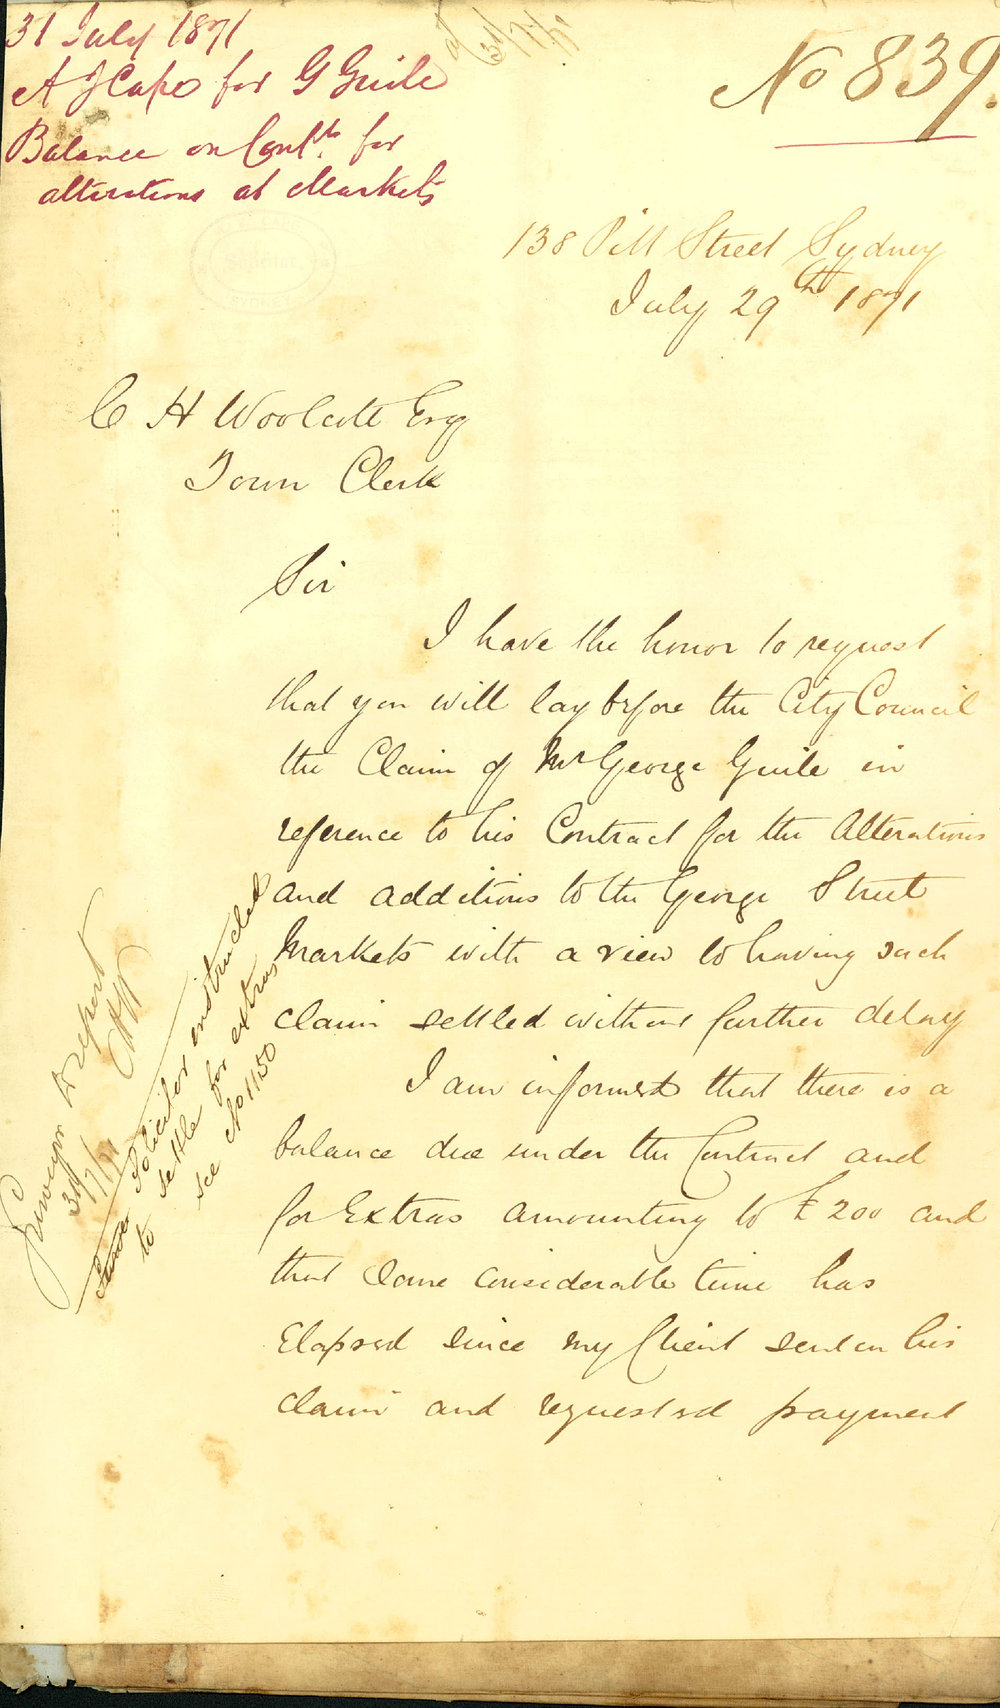 31 July 1871
A J Cape for G Guile
Balance on Cont. for
alterations at Markets
No 839.
138 Pitt Street Sydney
July 29th 1871
C H Woolcott Esq
Town Clerk
Sir
I have the honor to request
that you will lay before the City Council
the Claim of Mr George Guile in
reference to his Contract for the Alterations
and additions to the George Street
Markets with a view to having such
claim settled without further delay
I am informed that there is a
balance due under the Contract and
for Extras amounting to £200 and
that some considerable time has
Elapsed since my Client sent in his
claim and requested payment
Surveyor to report
31/7/71
Solicitor instructed
to settle for extras
see No 1150